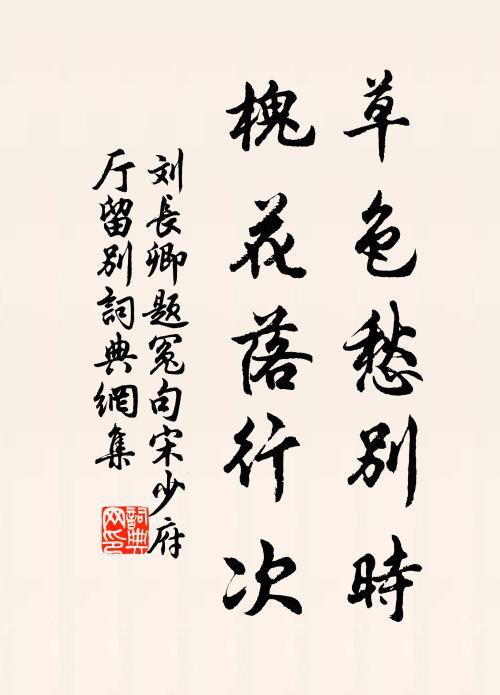 草色愁别時
槐花落行次
刘長卿題冤句宋少府
厅留别詞典網集
詞典网印